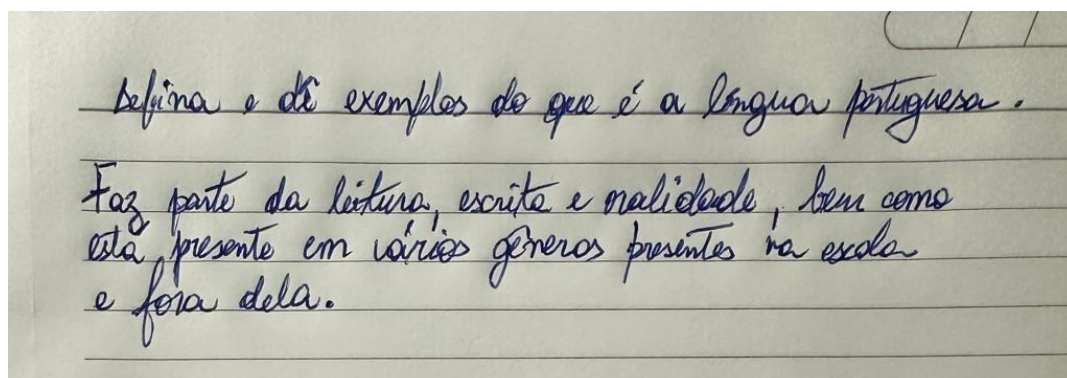 Defina e dê exemplos do que é a língua portuguesa.
Faz parte da leitura, escrita e oralidade, bem como
está presente em vários gêneros presentes na escola
e fora dela.